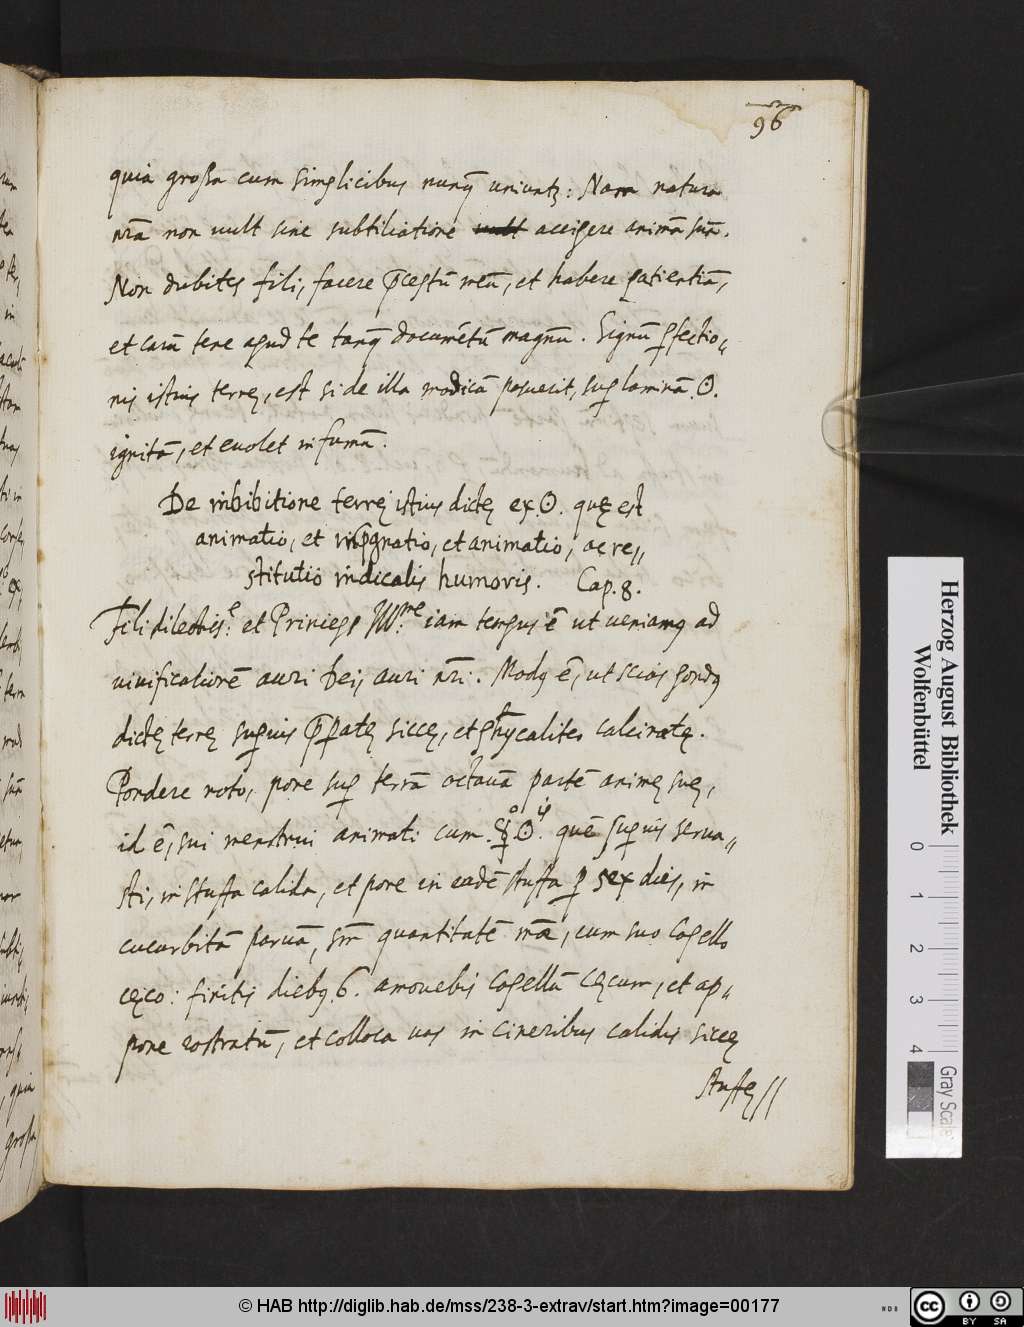 96
quia grossa cum simplicibus nunq̃ uniuntʒ: Nam natura
nr̃a non uult sine subtiliatione uult accipere animã suã.
Non dubites fili, facere p̄ceptũ meũ, et habere patientiã,
et caut tene apud te tanq̃ documẽtũ magnũ. Signũ ꝑfectio„
nis istius terrę, est si de illa modicã posuerit, suꝑ laminã ☉.
ignitã, et euolet in fumũ.
De inbibitione terrę istius dictę ex ☉. quę est
animatio, et inp̄gnatio, et animatio, ac re„
stitutiõ indicalis humoris. Cap. 8.
Fili dilectis.e et Princeps Ill.me iam tempus ẽ ut ueniamꝰ ad
uiuificationẽ auri Dei, auri nr̃i. Modꝰ ẽ, ut scias pondꝰ
dictę terrę suꝑius p̄ꝑatę siccę, et phycaliter calcinatę.
Pondere noto, pone suꝑ terrã octauã partẽ animę suę,
id ẽ, sui menstrui animati cum ☿o. ☉is. quẽ suꝑius serua„
sti, in stuffa calida, et pone in eadẽ stuffa ꝑ sex dies, in
cucurbitã paruã, sm̃ quantitatẽ mãe, cum suo Capello
cęco: finitis diebꝰ 6. amouebis Capellũ cęcum, et ap„
pone rostratũ, et colloca uas in cineribus calidis siccę
stuffę //
quia
grossa
Herzog August Bibliothek
Wolfenbüttel
0 1 2 3 4
Gray Scale
© HAB http://diglib.hab.de/mss/238-3-extrav/start.htm?image=00177
cc BY SA